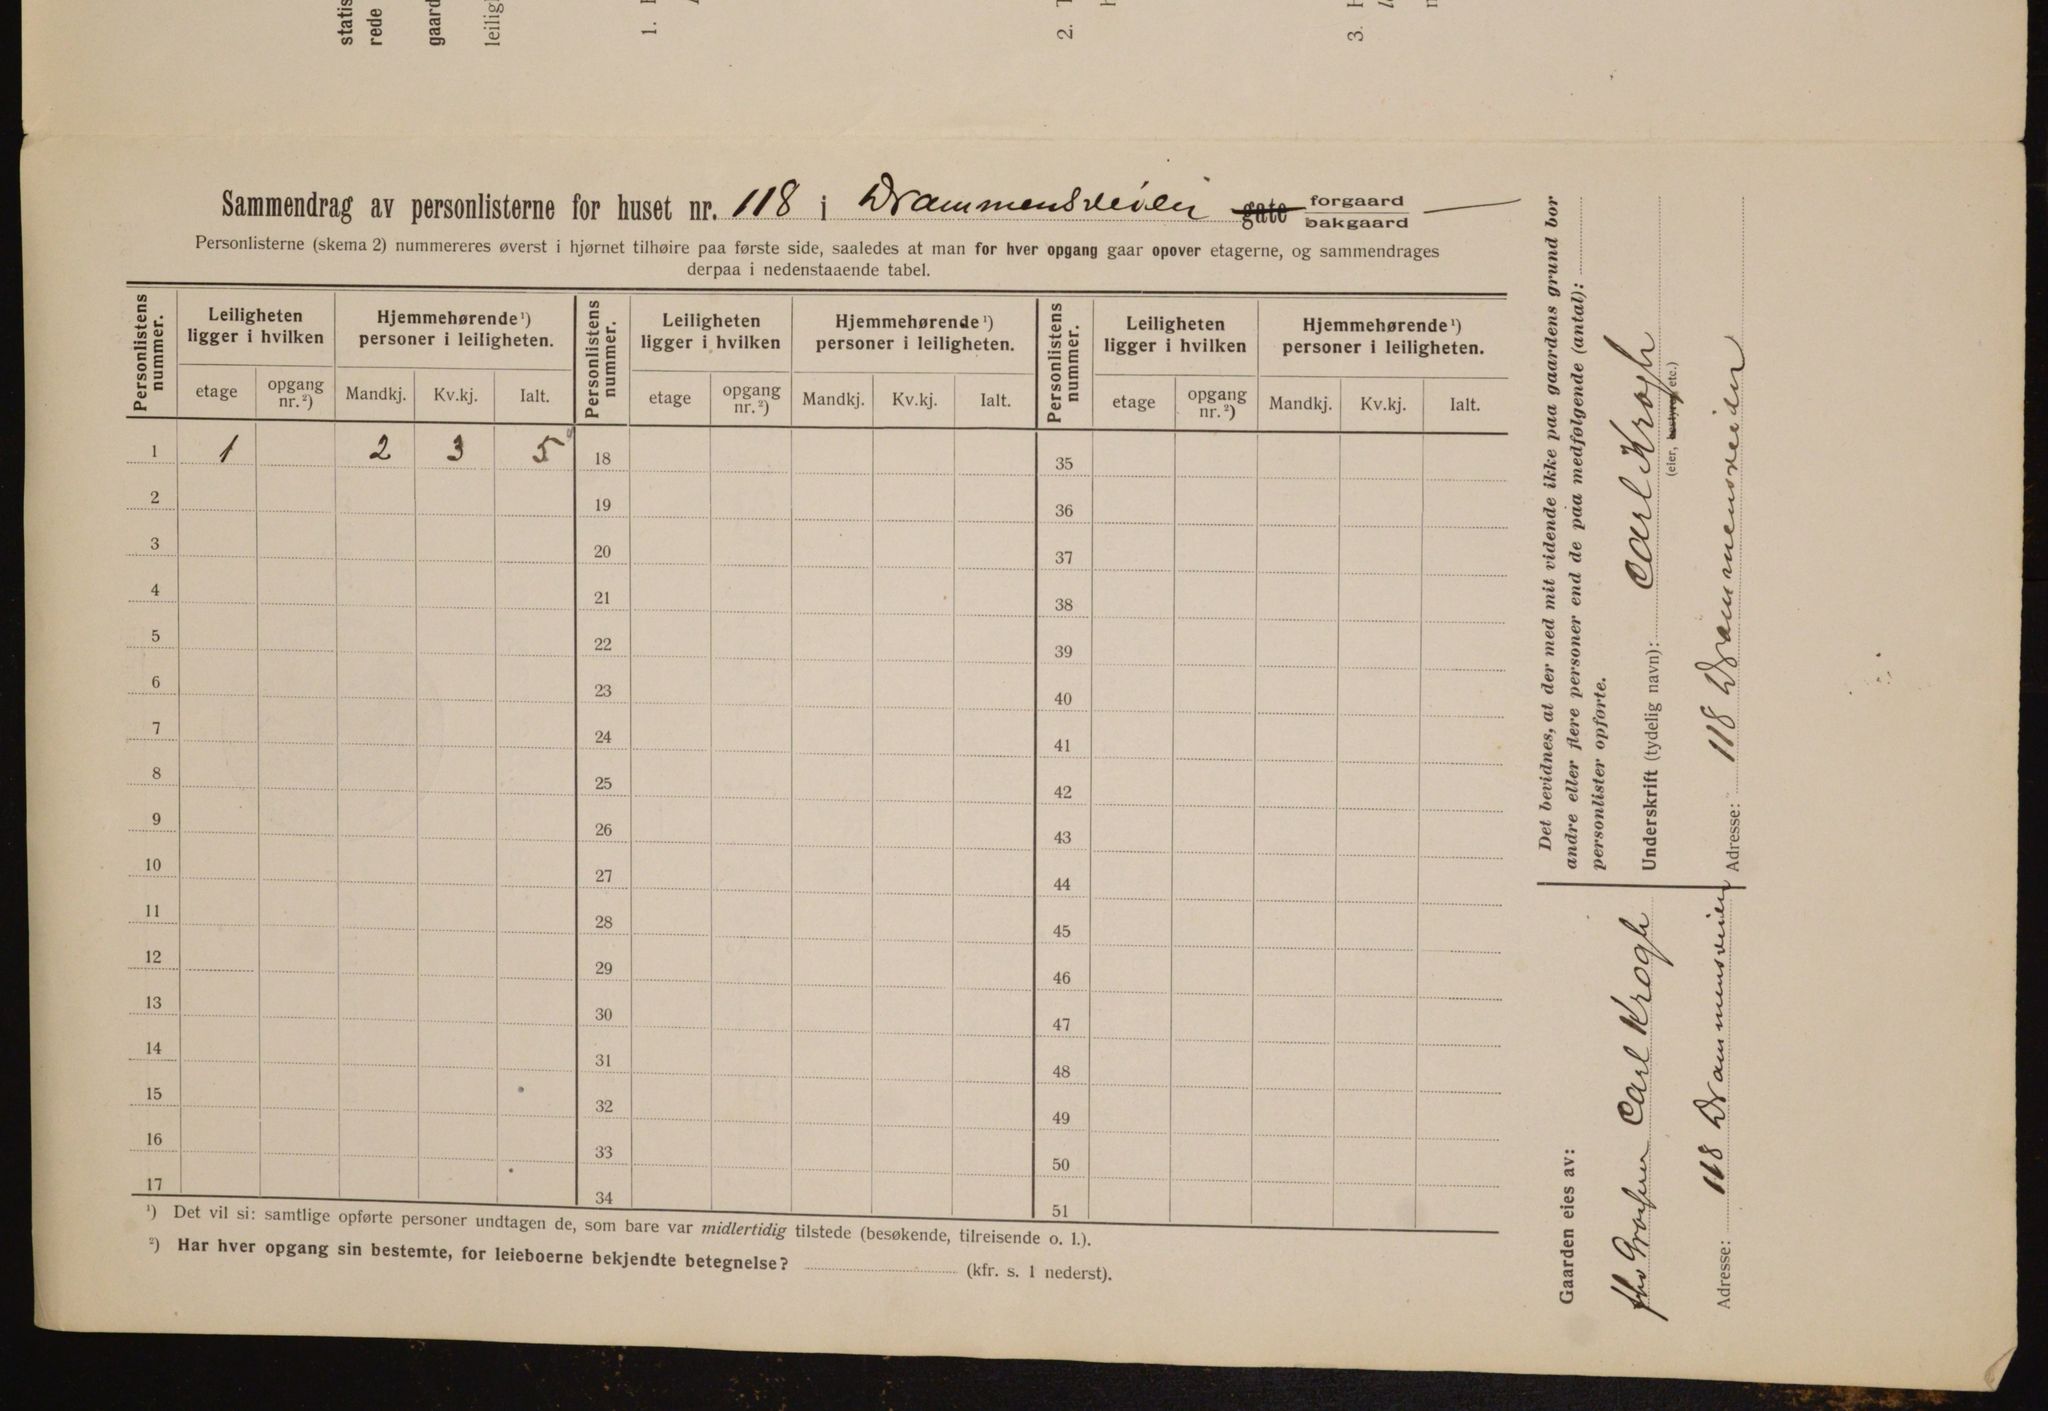 statis
rede
gaard
leilig
1.
2.
3.
Sammendrag av personlisterne for huset nr. 118 i Drammensveien gate forgaard
bakgaard
Personlisterne (skema 2) nummereres øverst i hjørnet tilhøire paa første side, saaledes at man for hver opgang gaar opover etagerne, og sammendrages
derpaa i nedenstaaende tabel.
Personlistens nummer. Leiligheten ligger i hvilken Hjemmehørende ¹) personer i leiligheten. Personlistens nummer. Leiligheten ligger i hvilken Hjemmehørende ¹) personer i leiligheten. Personlistens nummer. Leiligheten ligger i hvilken Hjemmehørende ¹) personer i leiligheten.
etage opgang nr. ²) Mandkj. Kv.kj. Ialt. etage opgang nr. ²) Mandkj. Kv.kj. Ialt. etage opgang nr. ²) Mandkj. Kv.kj. Ialt.
1 1 2 3 5 18 35
2 19 36
3 20 37
4 21 38
5 22 39
6 23 40
7 24 41
8 25 42
9 26 43
10 27 44
11 28 45
12 29 46
13 30 47
14 31 48
15 32 49
16 33 50
17 34 51
¹) Det vil si: samtlige opførte personer undtagen de, som bare var midlertidig tilstede (besøkende, tilreisende o. l.).
²) Har hver opgang sin bestemte, for leieboerne bekjendte betegnelse? (kfr. s. 1 nederst).
Det bevidnes, at der med mit vidende ikke paa gaardens grund bor
andre eller flere personer end de paa medfølgende (antal):
personlister opførte.
Underskrift (tydelig navn): Carl Krogh
(eier, bestyrer etc.)
Adresse: 118 Drammensveien
Gaarden eies av:
Carl Krogh
Adresse: 118 Drammensveien